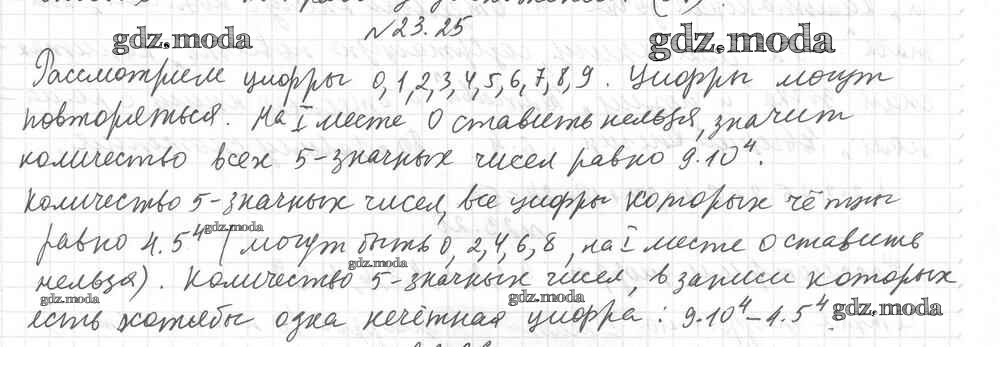 №23.25
gdz.moda gdz.moda
Рассмотрим цифры 0,1,2,3,4,5,6,7,8,9. Цифры могут
повторяться. На I месте 0 ставить нельзя, значит
количество всех 5-значных чисел равно 9·10⁴.
Количество 5-значных чисел, все цифры которых чётны
gdz.moda
равно 4·5⁴ (могут быть 0, 2, 4, 6, 8, на I месте 0 ставить
gdz.moda
нельзя). Количество 5-значных чисел, в записи которых
gdz.moda gdz.moda gdz.moda
есть хотя бы одна нечётная цифра: 9·10⁴-4·5⁴